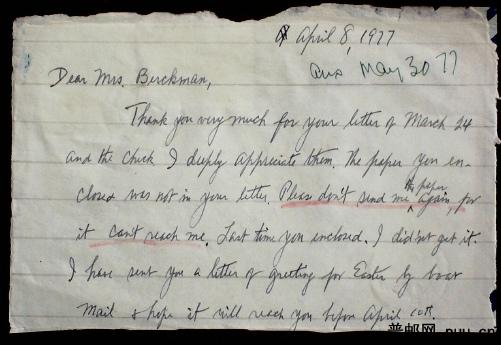 April 8, 1977
Ans May 30 77
Dear Mrs. Berckman,
Thank you very much for your letter of March 24
and the check I deeply appreciate them. The paper you en-
closed was not in your letter. Pleas don't send me the paper again for
it can't reach me. Last time you enclosed. I did not get it.
I have sent you a letter of greeting for Easter by boat
mail & hope it will reach you before April
普邮网